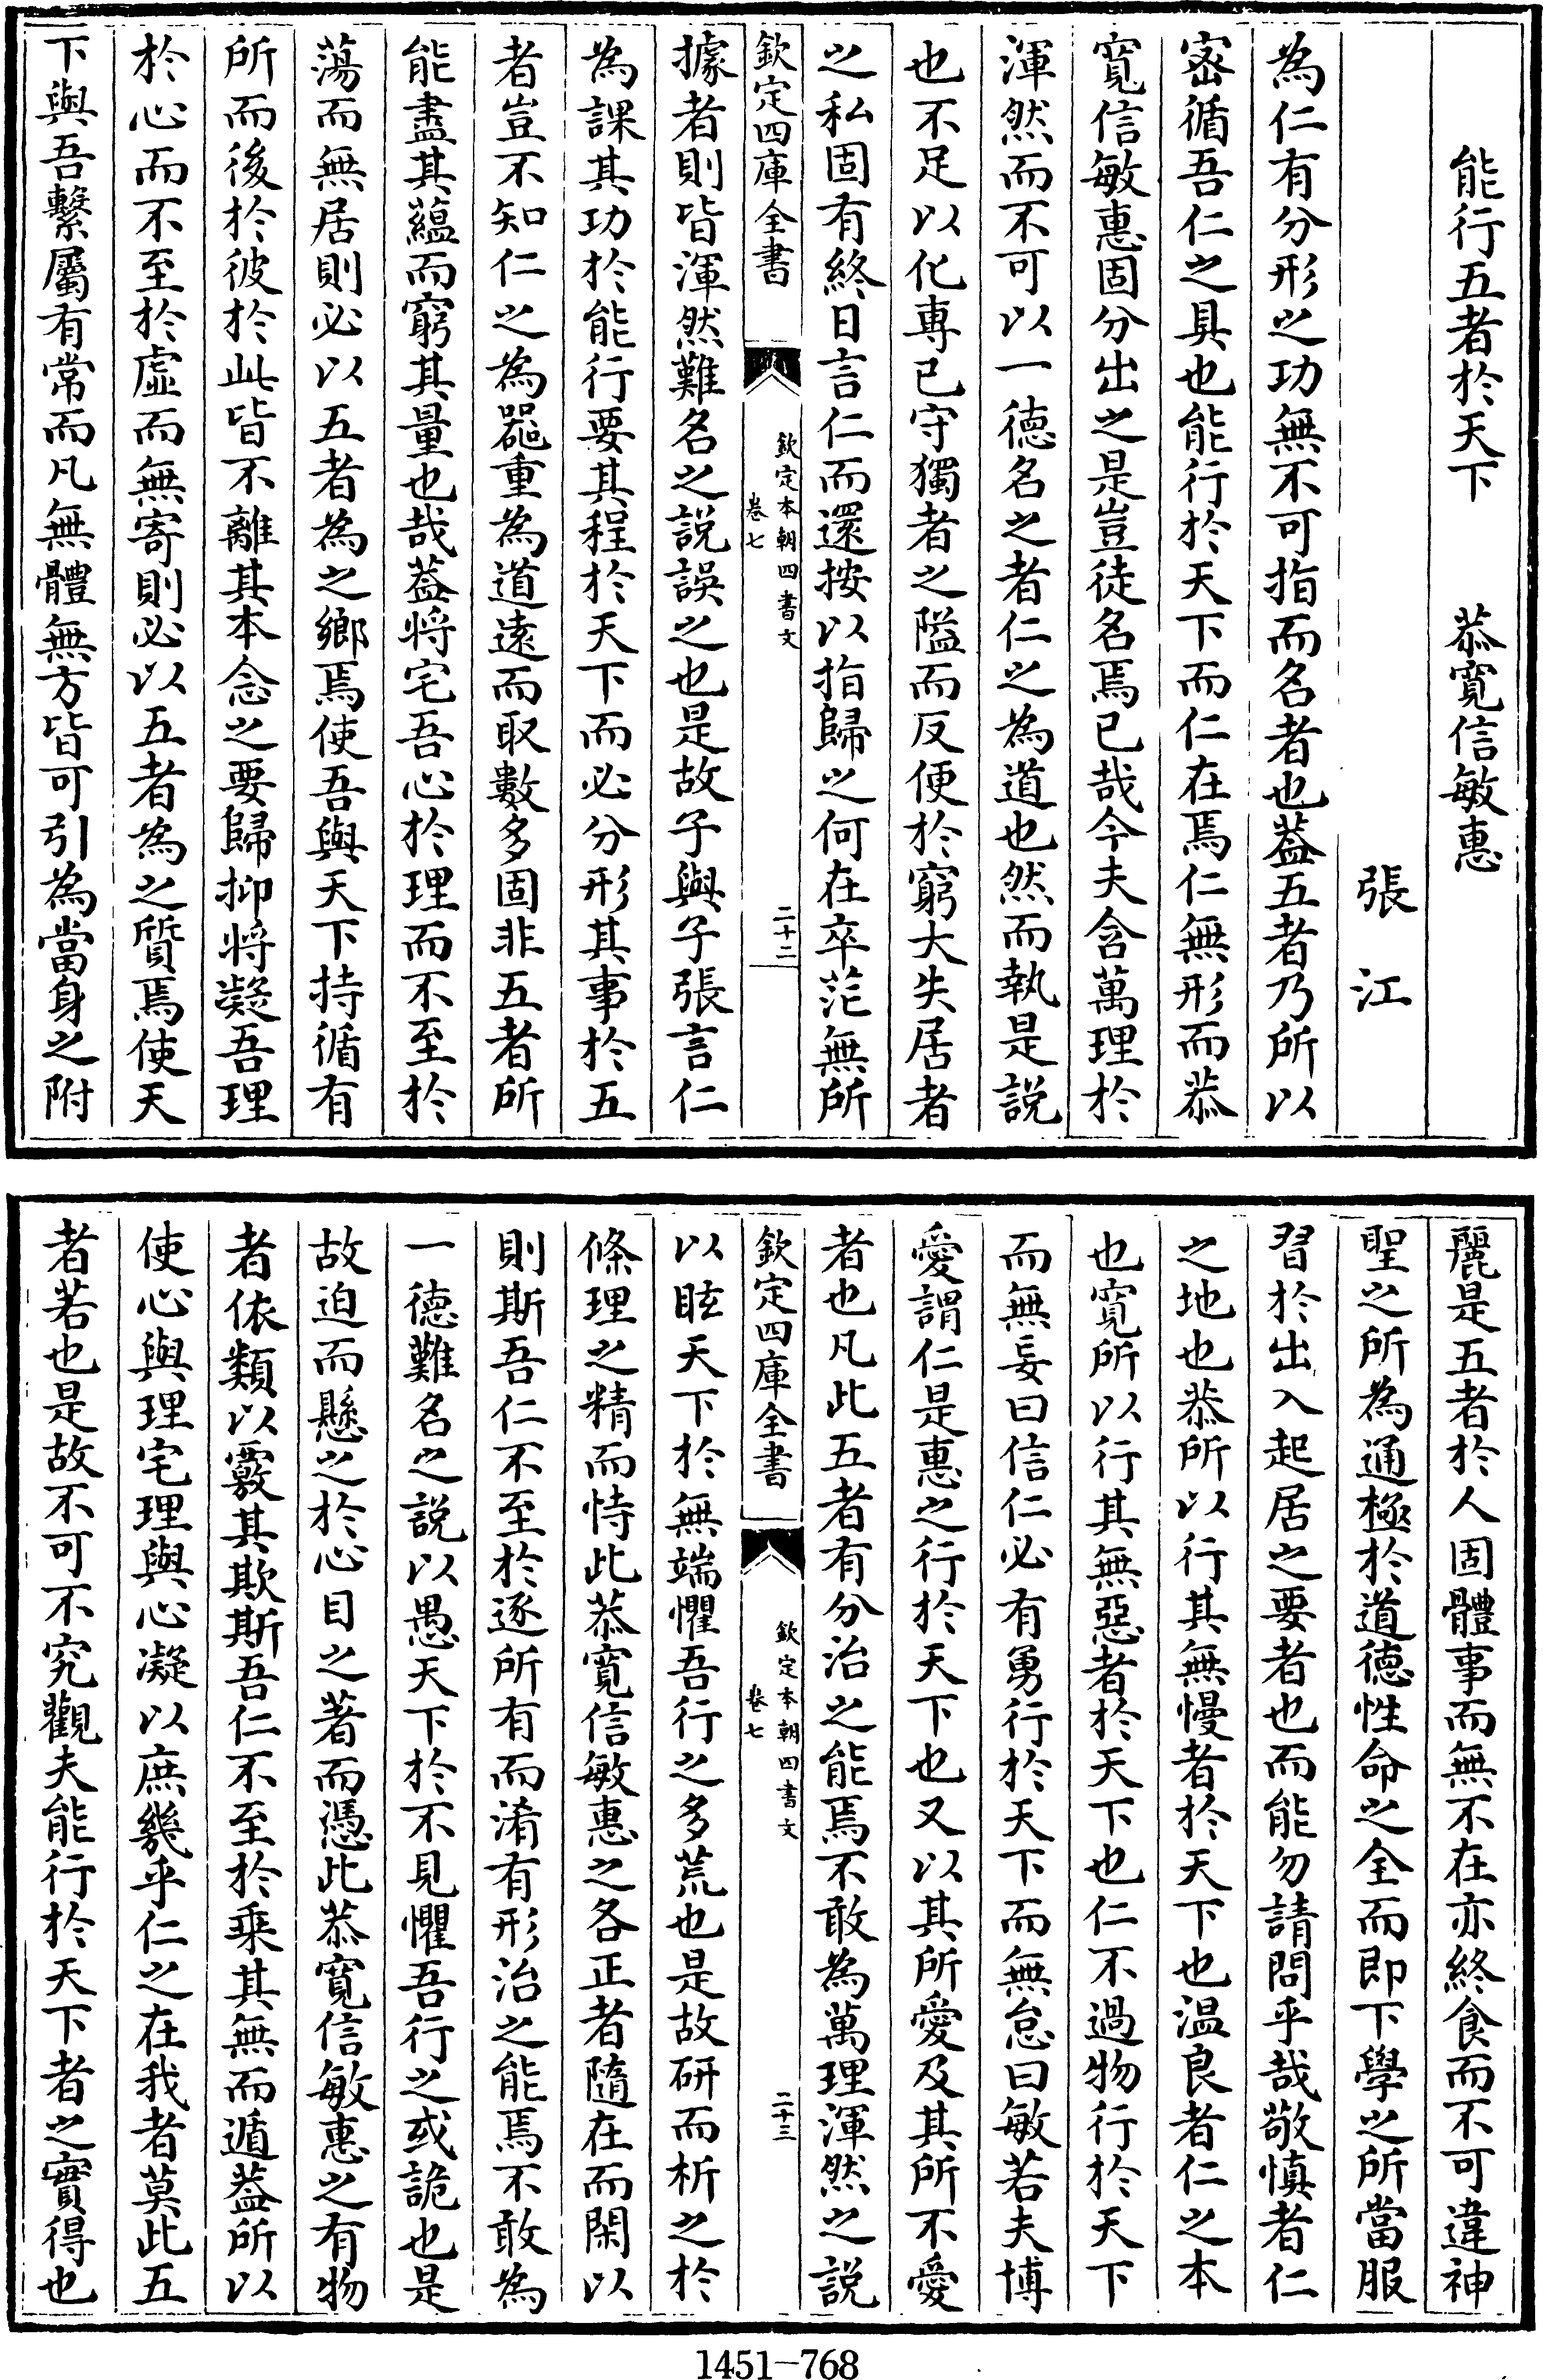 能行五者於天下　恭寛信敏惠
張江
為仁有分形之功無不可指而名者也葢五者乃所以
宻循吾仁之具也能行於天下而仁在焉仁無形而恭
寛信敏惠固分出之是豈徒名焉已哉今夫含萬理於
渾然而不可以一徳名之者仁之為道也然而執是説
也不足以化專已守獨者之隘而反便於窮大失居者
之私固有終日言仁而還按以指歸之何在卒茫無所
欽定四庫全書
欽定本朝四書文
卷七
二十二
據者則皆渾然難名之説誤之也是故子與子張言仁
為課其功於能行要其程於天下而必分形其事於五
者豈不知仁之為器重為道逺而取數多固非五者所
能盡其蘊而窮其量也哉葢將宅吾心於理而不至於
蕩而無居則必以五者為之鄉焉使吾與天下持循有
所而後於彼於此皆不離其本念之要歸抑將凝吾理
於心而不至於虛而無寄則必以五者為之質焉使天
下與吾繫屬有常而凡無體無方皆可引為當身之附
麗是五者於人固體事而無不在亦終食而不可違神
聖之所為通極於道徳性命之全而即下學之所當服
習於出入起居之要者也而能勿請問乎哉敬慎者仁
之地也恭所以行其無慢者於天下也温良者仁之本
也寛所以行其無惡者於天下也仁不過物行於天下
而無妄曰信仁必有勇行於天下而無怠曰敏若夫博
愛謂仁是惠之行於天下也又以其所愛及其所不愛
者也凡此五者有分治之能焉不敢為萬理渾然之説
欽定四庫全書
欽定本朝四書文
卷七
二十三
以眩天下於無端懼吾行之多荒也是故研而析之於
條理之精而恃此恭寛信敏惠之各正者隨在而閑以
則斯吾仁不至於逐所有而淆有形治之能焉不敢為
一徳難名之説以愚天下於不見懼吾行之或詭也是
故迫而懸之於心目之著而憑此恭寛信敏惠之有物
者依類以覈其欺斯吾仁不至於乗其無而遁葢所以
使心與理宅理與心凝以庶幾乎仁之在我者莫此五
者若也是故不可不究觀夫能行於天下者之實得也
1451—768